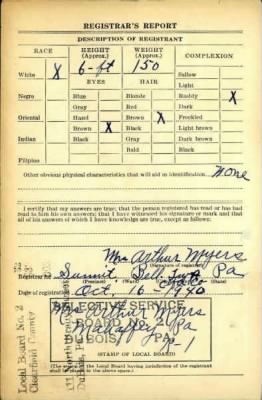 REGISTRAR'S REPORT
DESCRIPTION OF REGISTRANT
RACE HEIGHT (Approx.) WEIGHT (Approx.) COMPLEXION
White X 6-ft 150 Sallow
Light
EYES HAIR
Negro Blue Blonde Ruddy X
Gray Red Dark
Oriental Hazel Brown X Freckled
Brown X Black Light brown
Indian Black Gray Dark brown
Bald Black
Filipino
Other obvious physical characteristics that will aid in identification None
I certify that my answers are true; that the person registered has read or has had
read to him his own answers; that I have witnessed his signature or mark and that
all of his answers of which I have knowledge are true, except as follows:
Mrs Arthur Myers
(Signature of registrar)
Registrar for Summit Pa
(Precinct) (Ward) (City or county)
Date of registration Oct. 16 1940
SELECTIVE SERVICE
Mrs Arthur Myers
Mahaffey Pa
DU BOIS, PA.
(STAMP OF LOCAL BOARD)
(The stamp of the Local Board having jurisdiction of the registrant
shall be placed in the above space.)
Local Board No. 2
Clearfield County
DuBois, Pa.